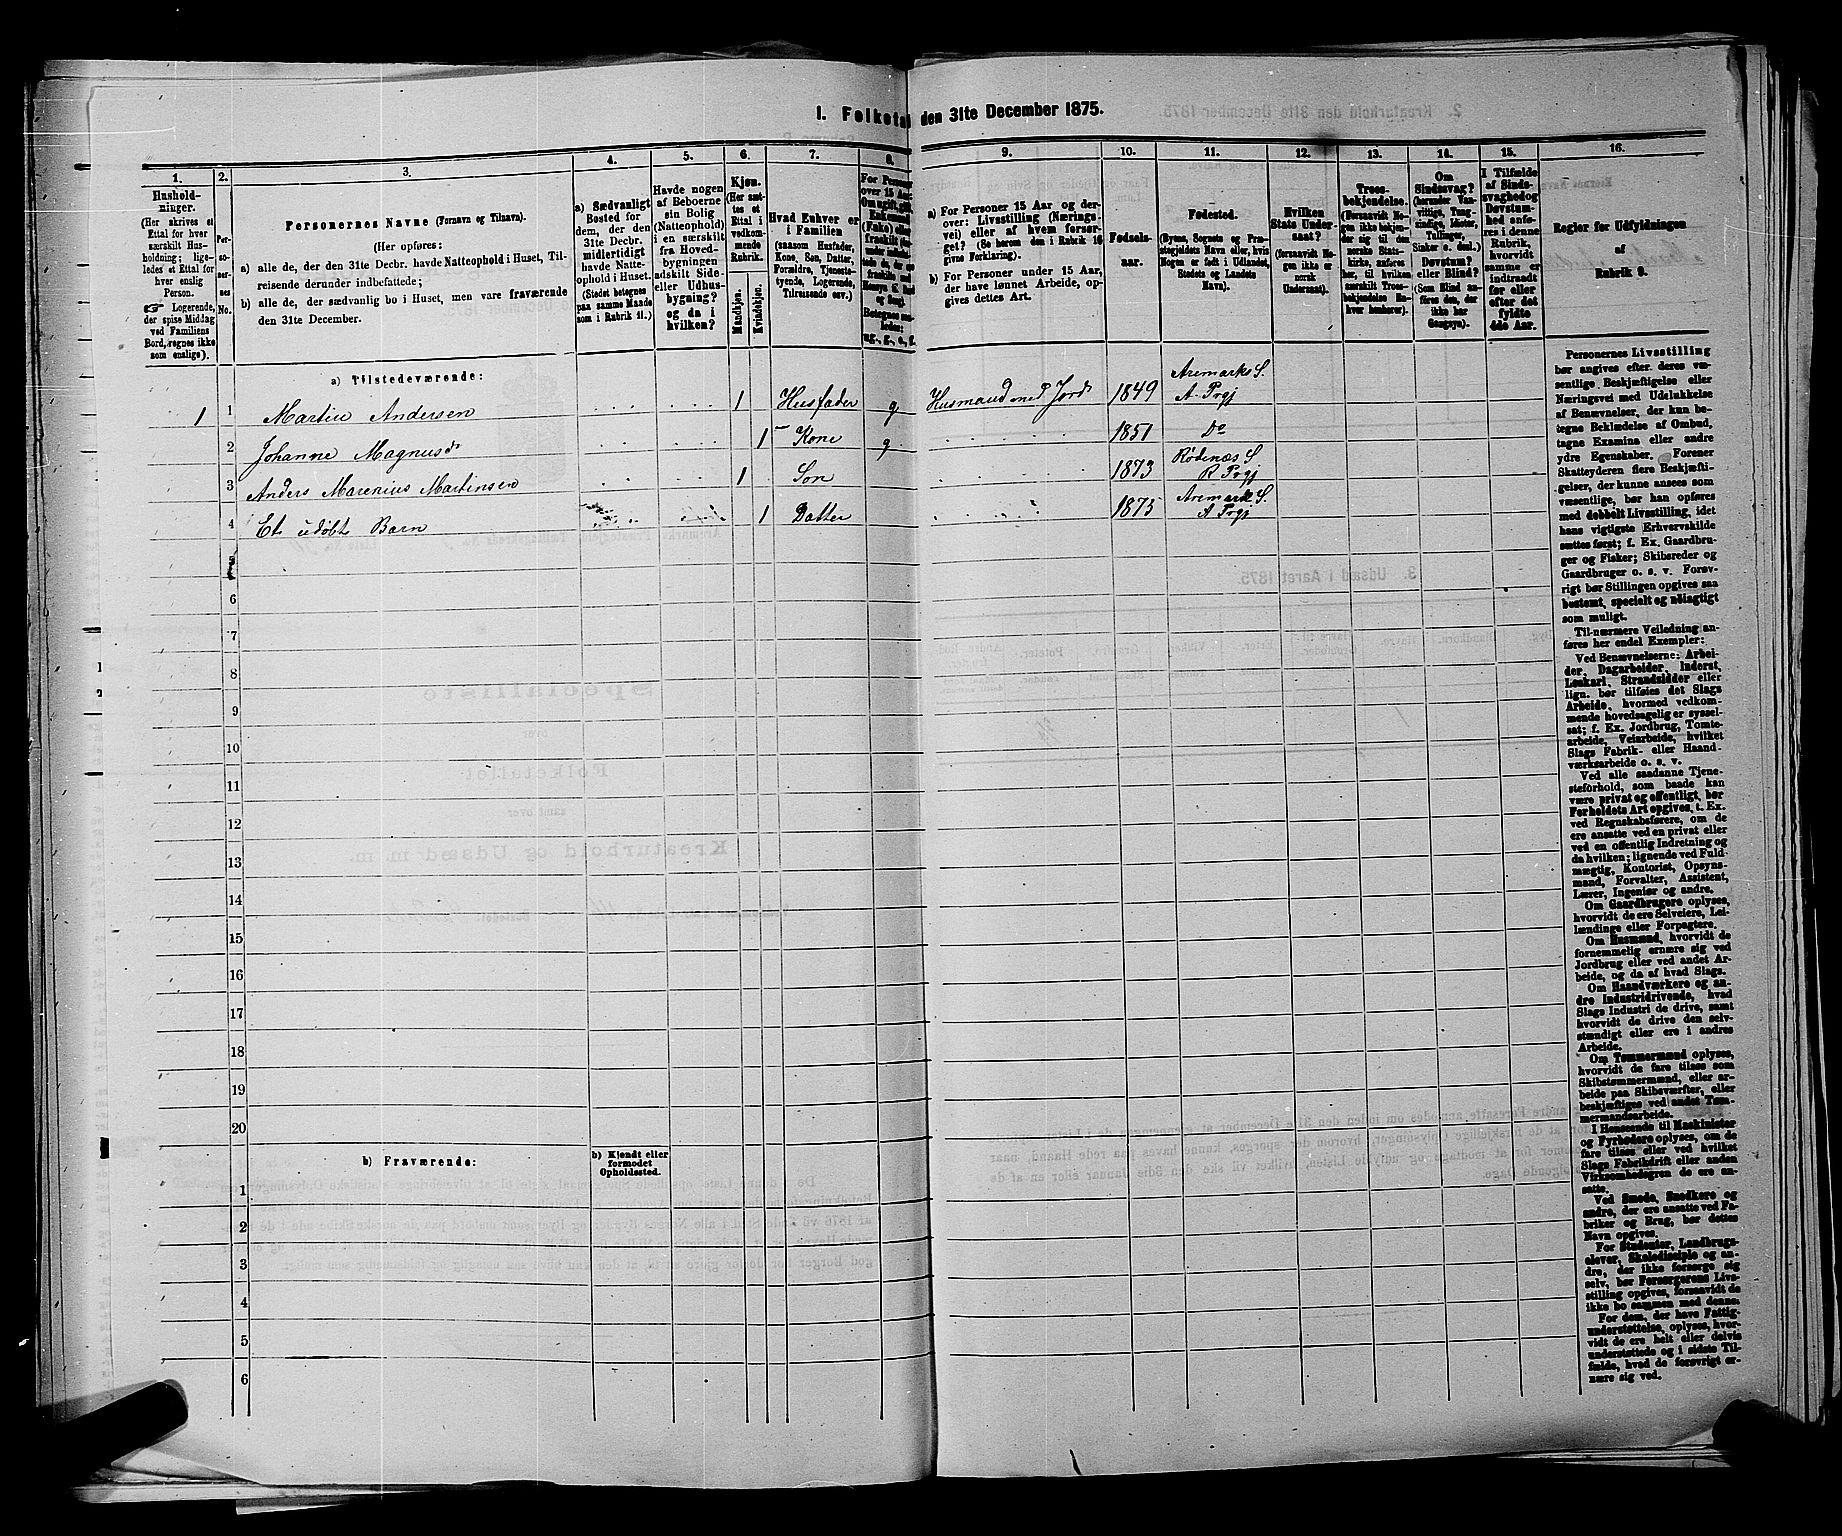 1. Folketal den 31te December 1875.
1.
Hushold-
ninger.
(Her skrives et
Ettal for hver
særskilt Hus-
holdning; lige-
ledes et Ettal for
hver enslig
Person.
☞ Logerende,
der spise Middag
ved Familiens
Bord, regnes ikke
som enslige).
2.
Per-
so-
ner-
nes
No.
3.
Personernes Navne (Fornavn og Tilnavn).
(Her opføres:
a) alle de, der den 31te Decbr. havde Natteophold i Huset, Til-
reisende derunder indbefattede;
b) alle de, der sædvanlig bo i Huset, men vare fraværende
den 31te December.
4.
a) Sædvanligt
Bosted for
dem, der den
31te Decbr.
midlertidigt
havde Natte-
ophold i Huset.
(Stedet betegnes
paa samme Maade
som i Rubrik 11.)
5.
Havde nogen
af Beboerne
sin Bolig
(Natteophold)
i en særskilt
fra Hoved-
bygningen
adskilt Side-
eller Udhus-
bygning?
og da i
hvilken?
6.
Kjøn.
(Her sæt-
tes et
Ettal i
vedkom-
mende
Rubrik.
Mandkjøn.
Kvindekjøn.
7.
Hvad Enhver er
i Familien
(saasom Husfader,
Kone, Søn, Datter,
Forældre, Tjeneste-
tyende, Logerende,
Tilreisende osv.)
8.
For Personer
over 15 Aar:
9.
a) For Personer 15 Aar og der-
over: Livsstilling (Nærings-
vei) eller af hvem forsør-
get? (Se herom den i Rubrik 16
givne Forklaring).
b) For Personer under 15 Aar,
der have lønnet Arbeide, op-
gives dettes Art.
10.
Fødsels-
aar.
11.
Fødested.
(Byens, Sognets og Præ-
stegjeldets Navn eller, hvis
Nogen er født i Udlandet,
Stedets og Landets
Navn).
12.
Hvilken
Stats Under-
saat?
(forsaavidt No-
gen ikke er
norsk
Undersaat).
13.
Troes-
bekjendelse.
(Forsaavidt No-
gen ikke bekjen-
der sig til den
norske Stats-
kirke, anføres
her, til hvilken
særskilt Troes-
bekjendelse En-
hver henhører).
14.
Om
Sindssvag?
(herunder Van-
vittige, Tung-
sindige, Idioter,
Tullinger,
Sinker o. desl.)
Døvstum?
eller Blind?
(Som Blind an-
føres den, der
ikke har
Gangsyn).
15.
I Tilfælde
af Sinds-
svaghed og
Døvstum-
hed anfø-
res i denne
Rubrik,
hvorvidt
samme er
indtraadt
før eller
efter det
fyldte
4de Aar.
16.
Regler for Udfyldningen
af
Rubrik 9.
a) Tilstedeværende:
1 1 Martin Andersen 1 Husfader g Husmand med Jord 1849 Aremarks S. A. Prgj
2 Johanne Magnusd. 1 Kone g 1851 Do
3 Anders Marenius Martinsen 1 Søn 1873 Rødenæs S. R. Prgj
4 Et udøbt Barn 1 Datter 1875 Aremark S. A Prgj
5
6
7
8
9
10
11
12
13
14
15
16
17
18
19
20
b) Fraværende:
b) Kjendt eller
formodet
Opholdssted.
1
2
3
4
5
6
Personernes Livsstilling
bør angives efter deres væ-
sentlige Beskjæftigelse eller
Næringsvei med Udelukkelse
af Benævnelser, der kun be-
tegne Beklædelse af Ombud,
tagne Examina eller andre
ydre Egenskaber. Forener
Skatteyderen flere Beskjæfti-
gelser, der kunne ansees som
væsentlige, bør han opføres
med dobbelt Livsstilling, idet
hans vigtigste Erhvervskilde
sættes først; f. Ex. Gaardbru-
ger og Fisker; Skibsreder og
Gaardbruger o. s. v. Forøv-
rigt bør Stillingen opgives saa
bestemt, specielt og nøiagtigt
som muligt.
Til nærmere Veiledning an-
føres her endel Exempler:
Ved Benævnelserne: Arbei-
der, Dagarbeider, Inderst,
Løskarl, Strandsidder eller
lign. bør tilføies det Slags
Arbeide, hvormed vedkom-
mende hovedsagelig er syssel-
sat; f. Ex. Jordbrug, Tomte-
arbeide, Veiarbeide, hvilket
Slags Fabrik- eller Haand-
værksarbeide o. s. v.
Ved alle saadanne Tjene-
steforhold, som baade kan
være privat og offentligt, bør
Forholdets Art opgives, t. Ex.
ved Regnskabsførere, om de
ere ansatte ved en privat eller
ved en offentlig Indretning og
da hvilken; lignende ved Fuld-
mægtig, Kontorist, Opsyns-
mand, Forvalter, Assistent,
Lærer, Ingeniør og andre.
Om Gaardbrugere oplyses,
hvorvidt de ere Selveiere, Lei-
lændinge eller Forpagtere.
Om Husmænd, hvorvidt de
fornemmelig ernære sig ved
Jordbrug eller ved andet Ar-
beide, og da af hvad Slags.
Om Haandværkere og an-
dre Industridrivende, hvad
Slags Industri de drive, samt
hvorvidt de drive den selv-
stændigt eller ere i andres
Arbeide.
Om Tømmermænd oplyses,
hvorvidt de fare tilsøs som
Skibstømmermænd, eller ar-
beide paa Skibsværfter, eller
beskjæftiges ved andet Tøm-
mermandsarbeide.
I Henseende til Maskinister
og Fyrbødere oplyses, om de
fare tilsøs eller ved hvilket
Slags Fabrikdrift eller anden
Virksomhedsgren de ere an-
satte.
Ved Smede, Snedkere og
andre, der ere ansatte ved Fa-
briker og Brug, bør dettes
Navn opgives.
For Studenter, Landbrugs-
elever, Skoledisciple og an-
dre, der ikke forsørge sig
selv, bør Forsørgerens Livs-
stilling opgives, forsaavidt de
ikke bo sammen med denne.
For dem, der have Fattig-
understøttelse, oplyses, hvor-
vidt de ere helt eller delvis
understøttede og i sidste Til-
fælde, hvad de forøvrigt er-
nære sig ved.